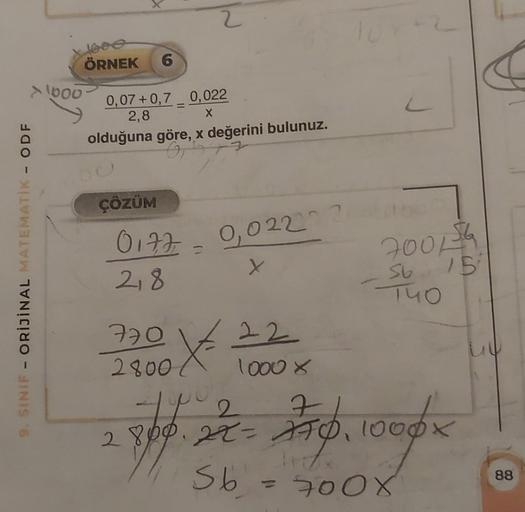 2
x1000
ÖRNEK 6
x1000
0,07 + 0,7 / 2,8 = 0,022 / x
olduğuna göre, x değerini bulunuz.
9. SINIF – ORİJİNAL MATEMATİK – ODF
ÇÖZÜM
0,77 / 2,8 = 0,022 / x
700 56
- 56 15
140
770 / 2800 = 22 / 1000x
2 7
2800 . 22 = 770 . 1000x
56 = 700x
88